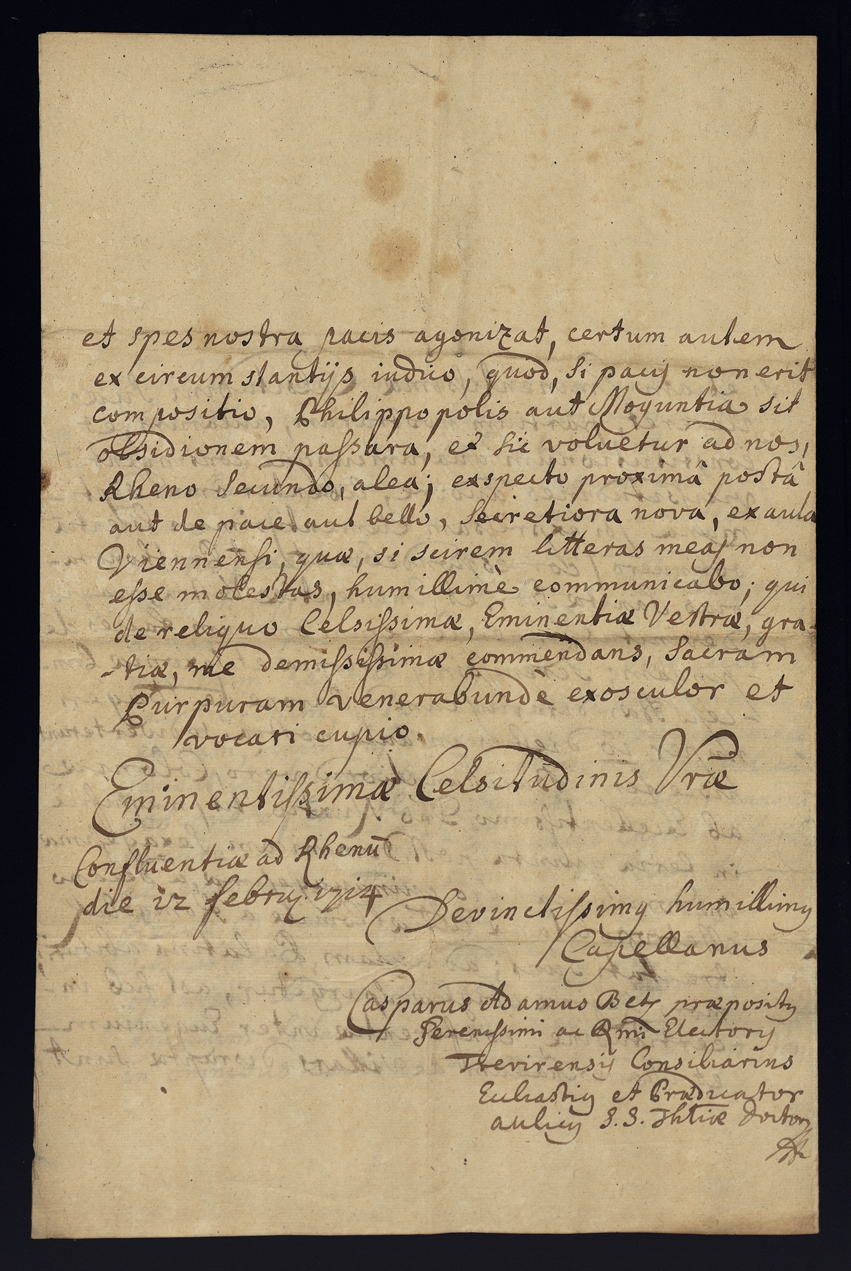 et spes nostra pacis agonizat, certum autem
ex circumstantijs iudico, quod, si pacis non erit
compositio, Philippopolis aut Moguntia sit
obsidionem passura, et sic voluetur ad nos,
Rheno secundo, alea; exspecto proximâ postâ
aut de pace aut bello, secretiora nova, ex aula
Viennensi, quæ, si scirem litteras meas non
esse molestas, humillimè communicabo; qui
de reliquo Celsissimæ, Eminentiæ Vestræ, gra-
-tiæ, me demississimæ commendans, sacram
Purpuram venerabundè exosculor et
vocari cupio.
Eminentissimæ Celsitudinis Vræ
Confluentiæ ad Rhenū
die 12 febry. 1714
Devinctissimus humillimus
Capellanus
Casparus Adamus Betz præpositus
Serenissimi ac Rmi Electoris
Trevirensis Consiliarius
Ecclasticus et Prædicator
aulicus S.S. Thliæ Doctor